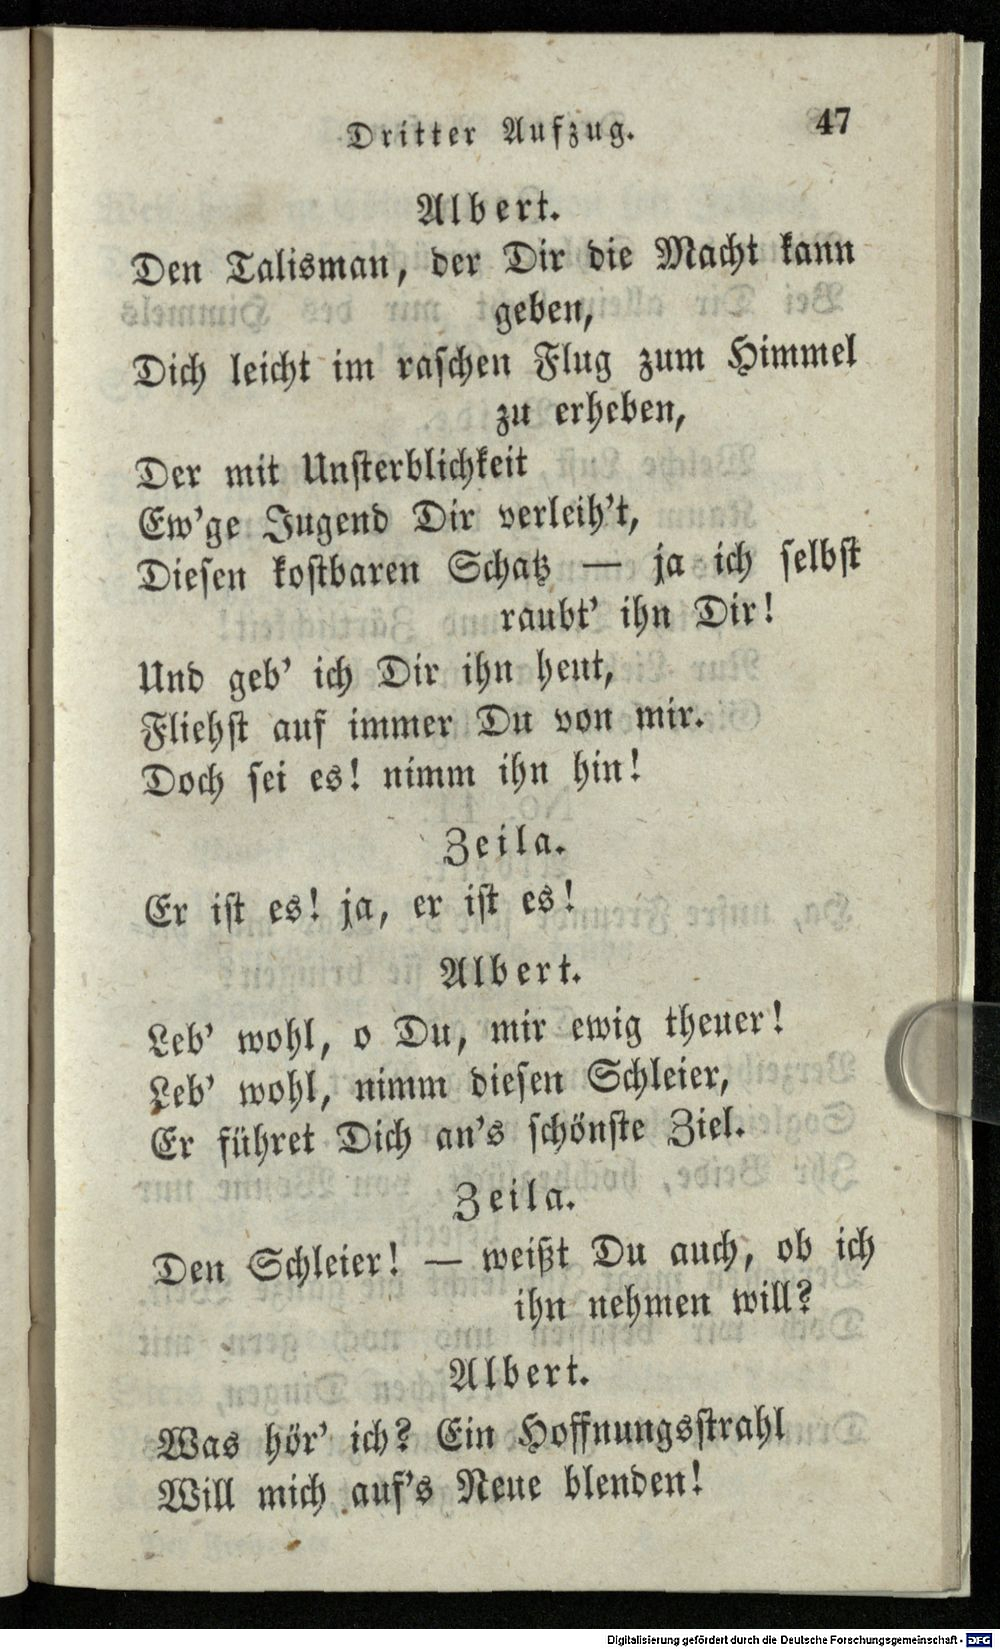 Dritter Aufzug. 47
Albert.
Den Talisman, der Dir die Macht kann
geben,
Dich leicht im raschen Flug zum Himmel
zu erheben,
Der mit Unsterblichkeit
Ew'ge Jugend Dir verleih't,
Diesen kostbaren Schatz — ja ich selbst
raubt' ihn Dir!
Und geb' ich Dir ihn heut,
Fliehst auf immer Du von mir.
Doch sei es! nimm ihn hin!
Zeila.
Er ist es! ja, er ist es!
Albert.
Leb' wohl, o Du, mir ewig theuer!
Leb' wohl, nimm diesen Schleier,
Er führet Dich an's schönste Ziel.
Zeila.
Den Schleier! — weißt Du auch, ob ich
ihn nehmen will?
Albert.
Was hör' ich? Ein Hoffnungsstrahl
Will mich auf's Neue blenden!
Digitalisierung gefördert durch die Deutsche Forschungsgemeinschaft - DFG